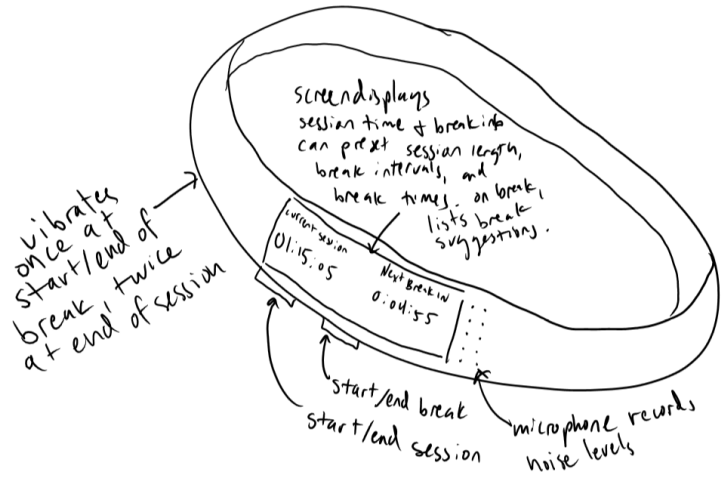 screen displays
session time & break info
can preset session length,
break intervals, and
break times. on break,
lists break
suggestions.
vibrates
once at
start/end of
break, twice
at end of session
current session
01:15:05
Next Break IN
0:04:55
start/end break
start/end session
microphone records
noise levels